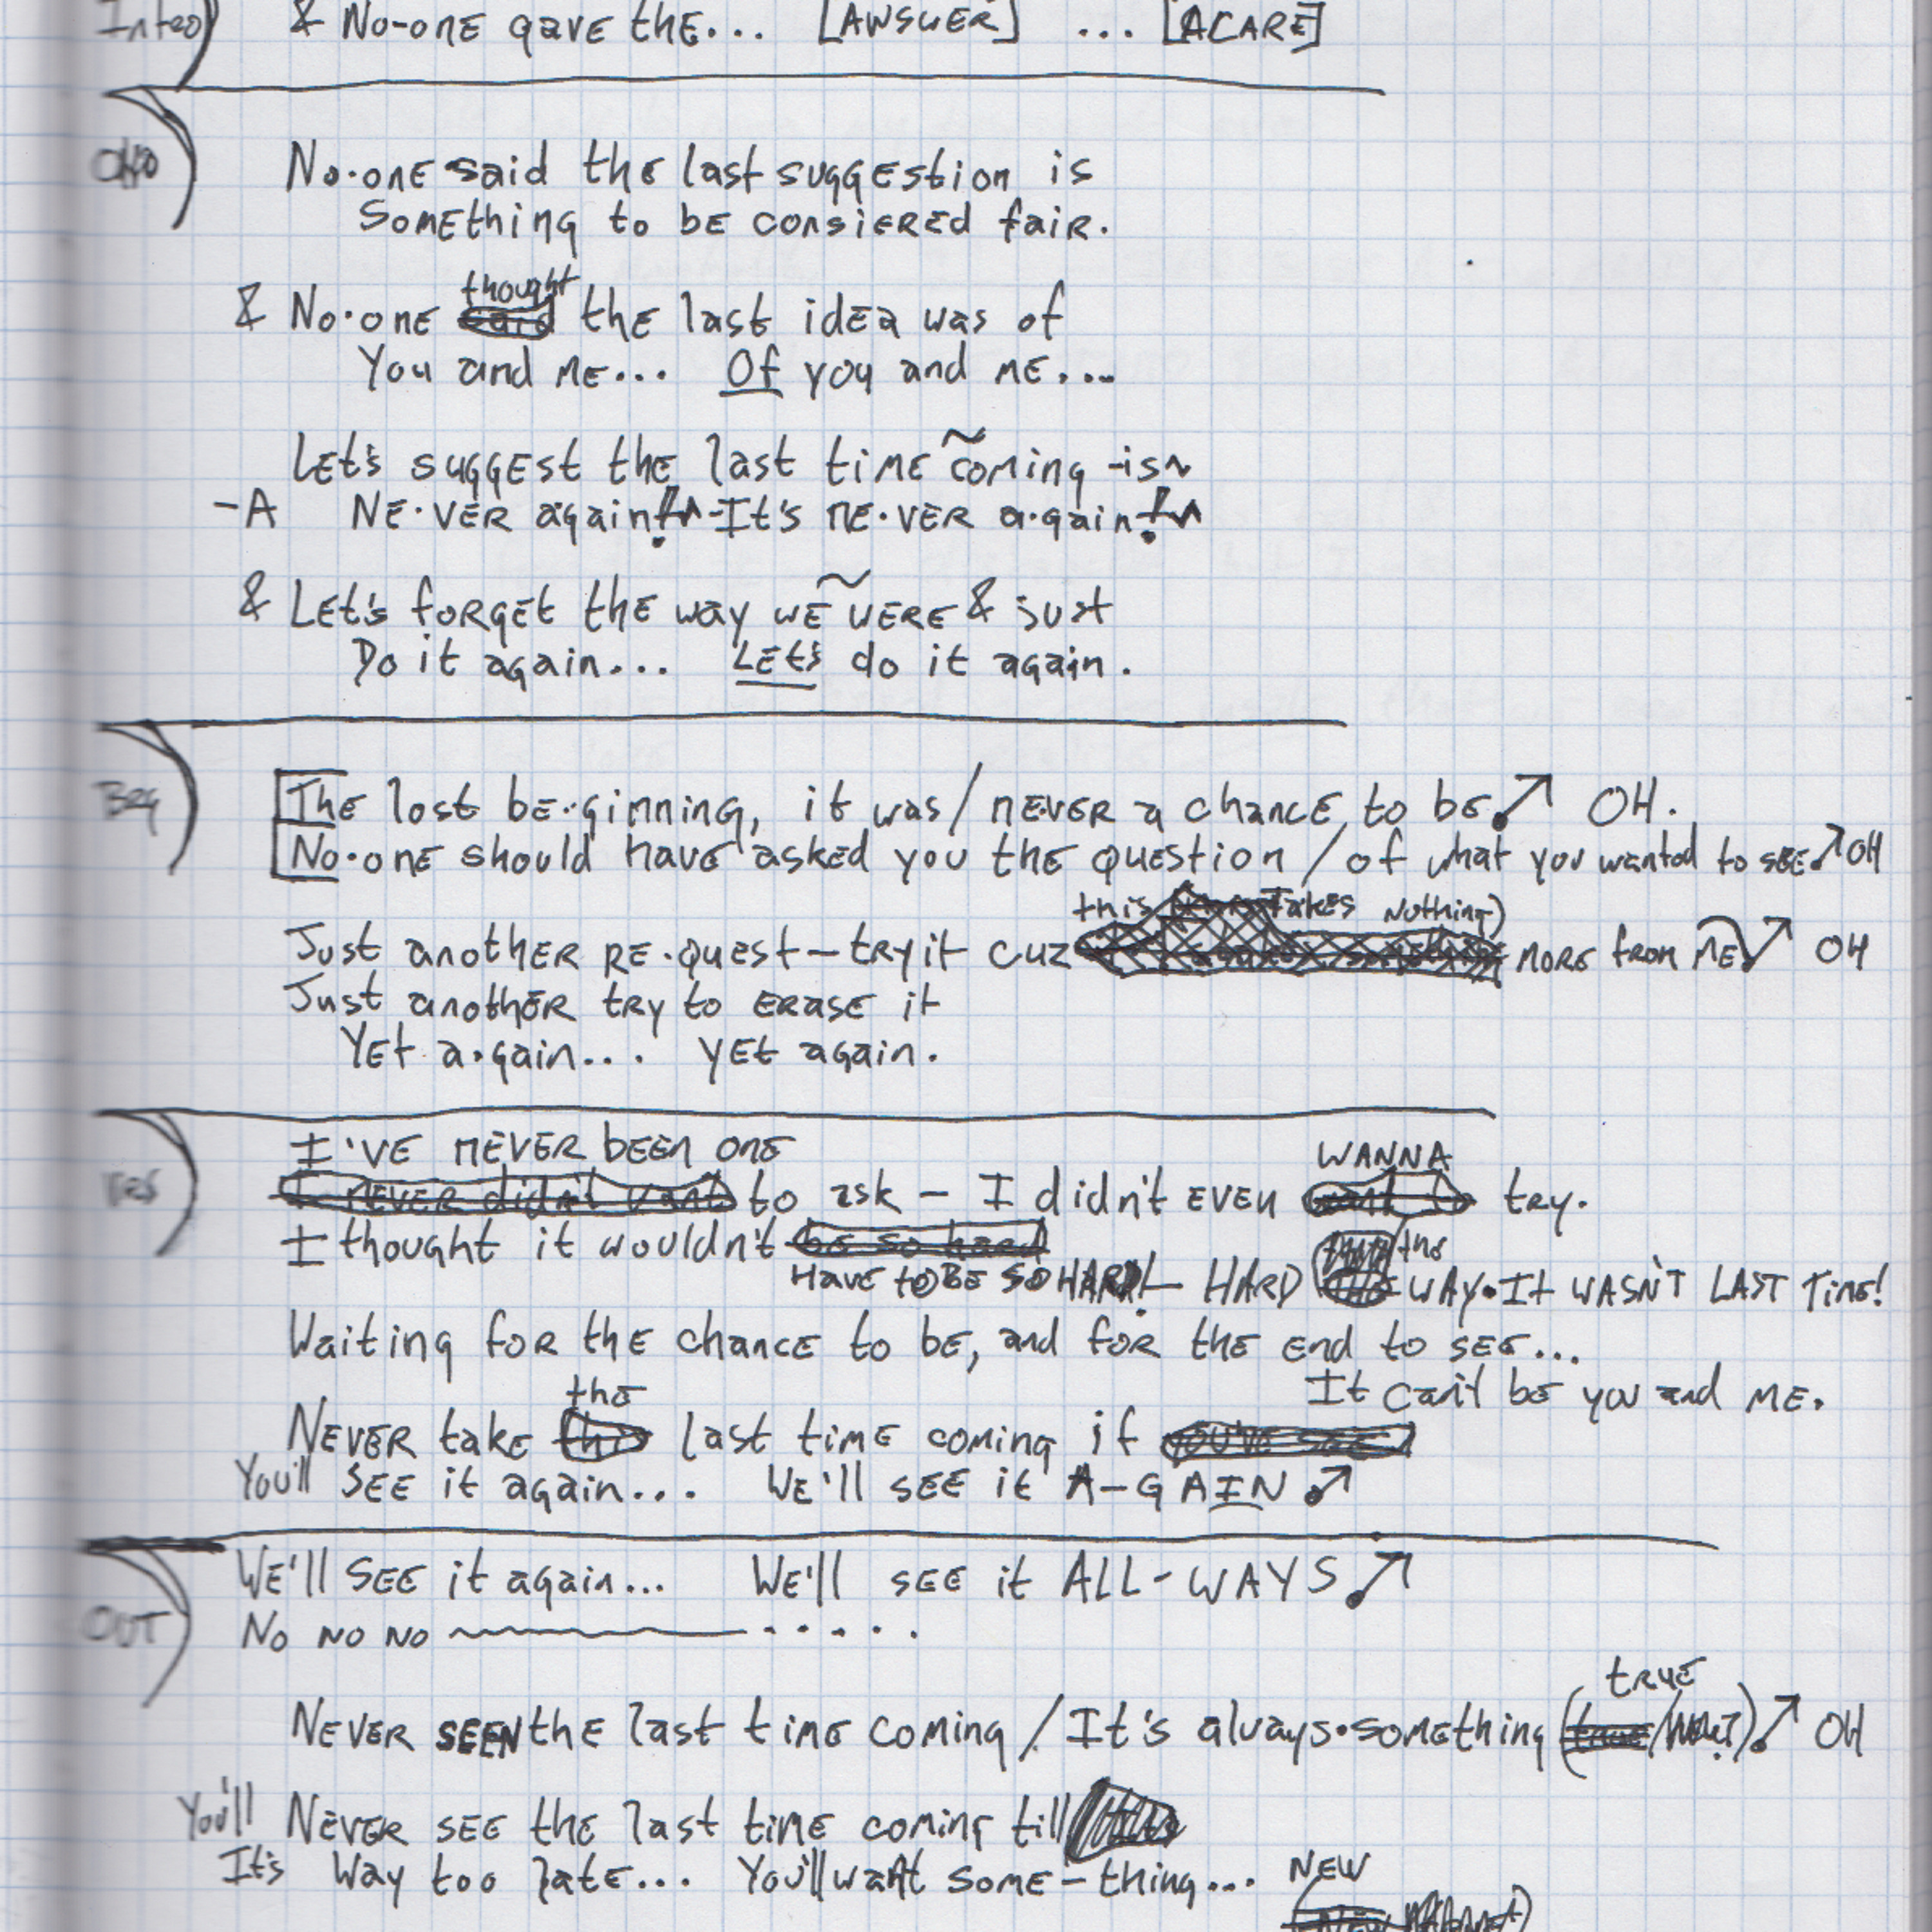 Intro) & No-one gave the... [ANSWER] ... [ACARE]
No·one said the last suggestion is
Something to be consiered fair.
thought
& No·one said the last idea was of
You and me... Of you and me....
Let's suggest the last time coming -is~
-A NE·VER again! -It's NE·VER a·gain!
& Let's forget the way we were & just
Do it again... Let's do it again.
Beg) The lost be·ginning, it was / never a chance to be OH.
No·one should have asked you the question / of what you wanted to see OH
this takes nothing)
Just another re·quest - try it cuz more from me OH
Just another try to erase it
Yet a·gain... yet again.
I've never been one WANNA
I never didn't want to ask - I didn't even want to try.
I thought it wouldn't be so hard the
Have to BE SO HARD! - HARD WAY·It WASN'T LAST TIME!
Waiting for the chance to be, and for the end to see...
It can't be you and me.
the
Never take this last time coming if you've see
You'll see it again... We'll see it A-GAIN
OUT) We'll see it again... We'll see it ALL-WAYS
No no no . . . . .
true
Never SEEN the last time coming / It's always·something (true/ ) OH
You'll Never see the last time coming till
It's Way too late... You'll want some-thing... NEW
(New